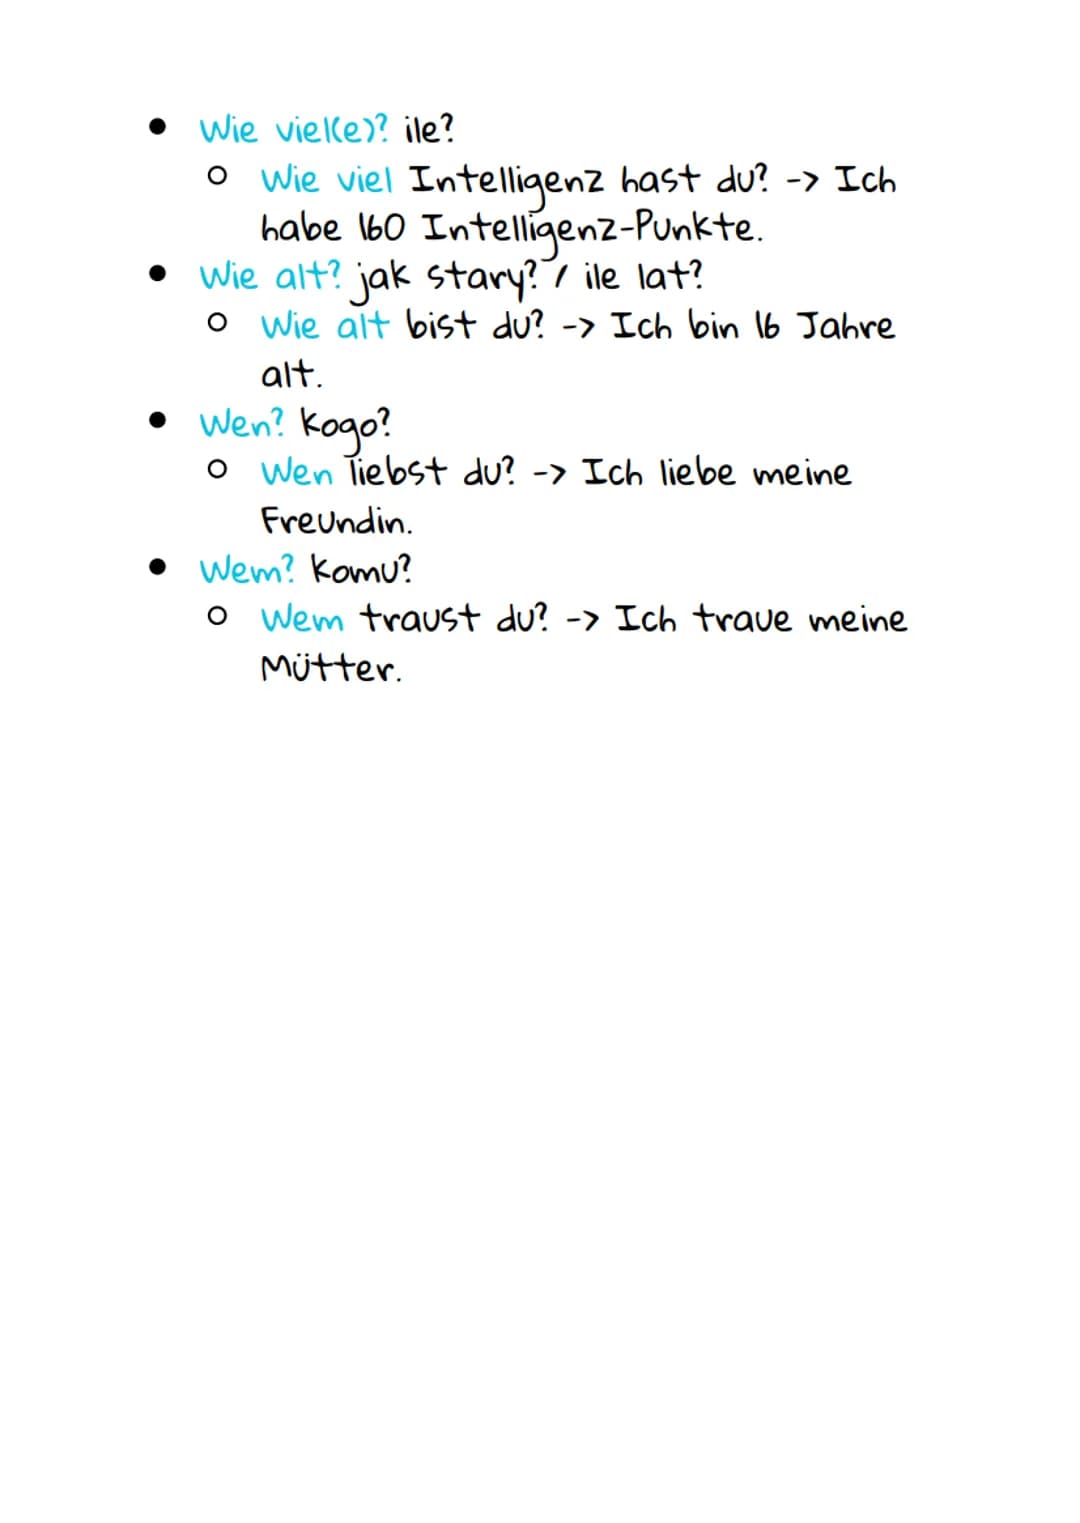 • Wie viel(e)? ile?
○ Wie viel Intelligenz hast du? -> Ich
habe 160 Intelligenz-Punkte.
• Wie alt? jak stary? / ile lat?
○ Wie alt bist du? -> Ich bin 16 Jahre
alt.
• Wen? kogo?
○ Wen liebst du? -> Ich liebe meine
Freundin.
• Wem? komu?
○ Wem traust du? -> Ich traue meine
Mütter.